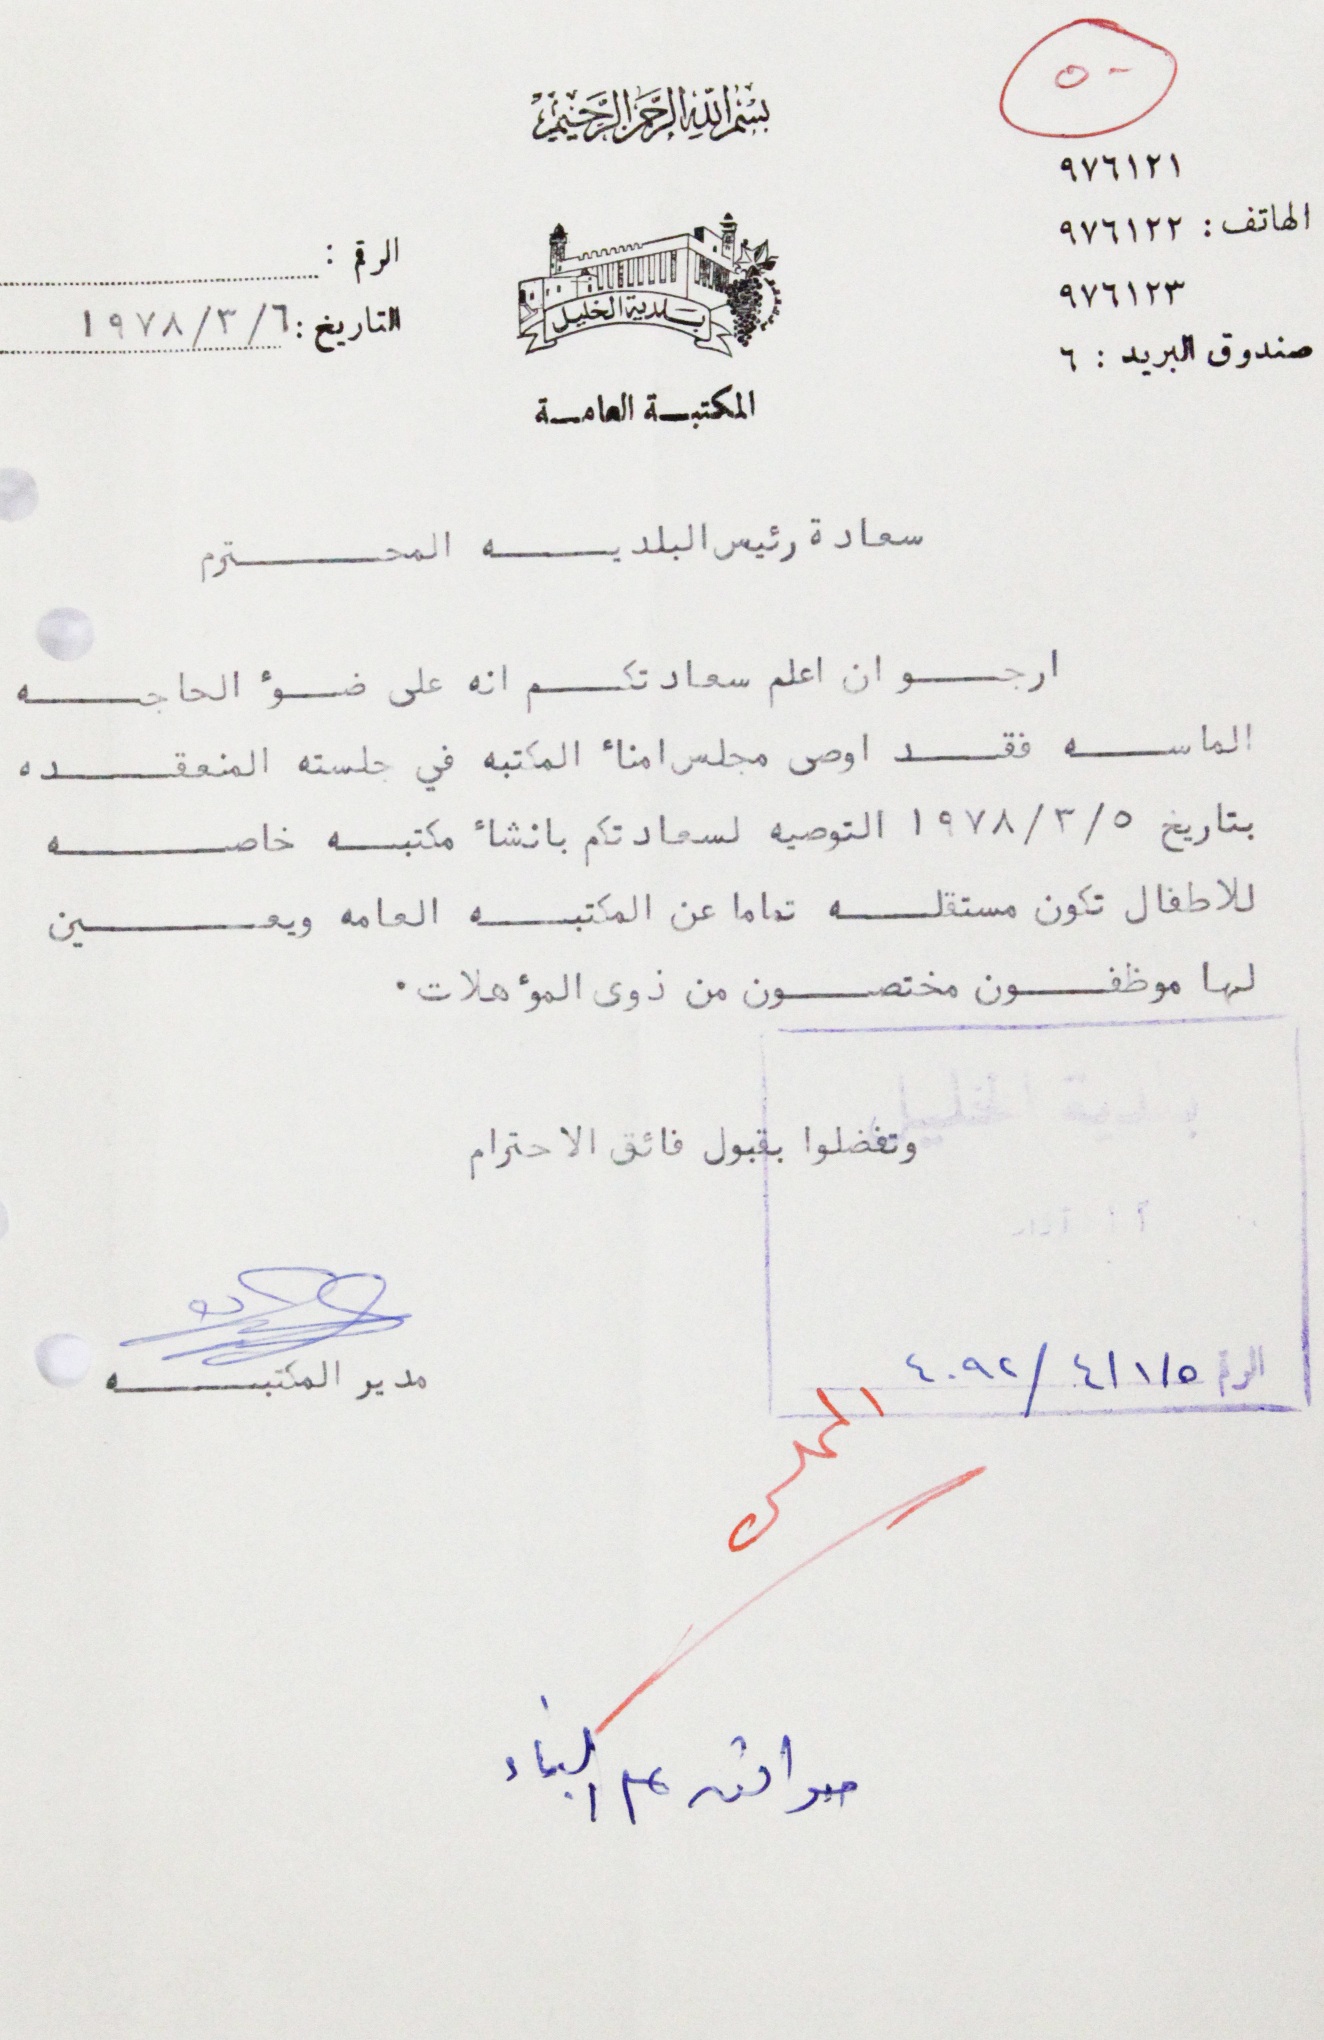 ٥ -
بسم الله الرحمن الرحيم
٩٧٦١٢١
الهاتف : ٩٧٦١٢٢
٩٧٦١٢٣
صندوق البريد : ٦
الرقم :
التاريخ : ١٩٧٨/٣/٦
بلدية الخليل
المكتبة العامة
سعادة رئيس البلديه المحترم
ارجو ان اعلم سعادتكم انه على ضوء الحاجه
الماسه فقد اوصى مجلس امناء المكتبه في جلسته المنعقده
بتاريخ ١٩٧٨/٣/٥ التوصيه لسعادتكم بانشاء مكتبه خاصه
للاطفال تكون مستقله تماما عن المكتبه العامه ويعين
لها موظفون مختصون من ذوى المؤهلات ٠
وتفضلوا بقبول فائق الاحترام
مدير المكتبه
بلدية الخليل
الرقم ٤٠٩٢/٤/١/٥
المجلس